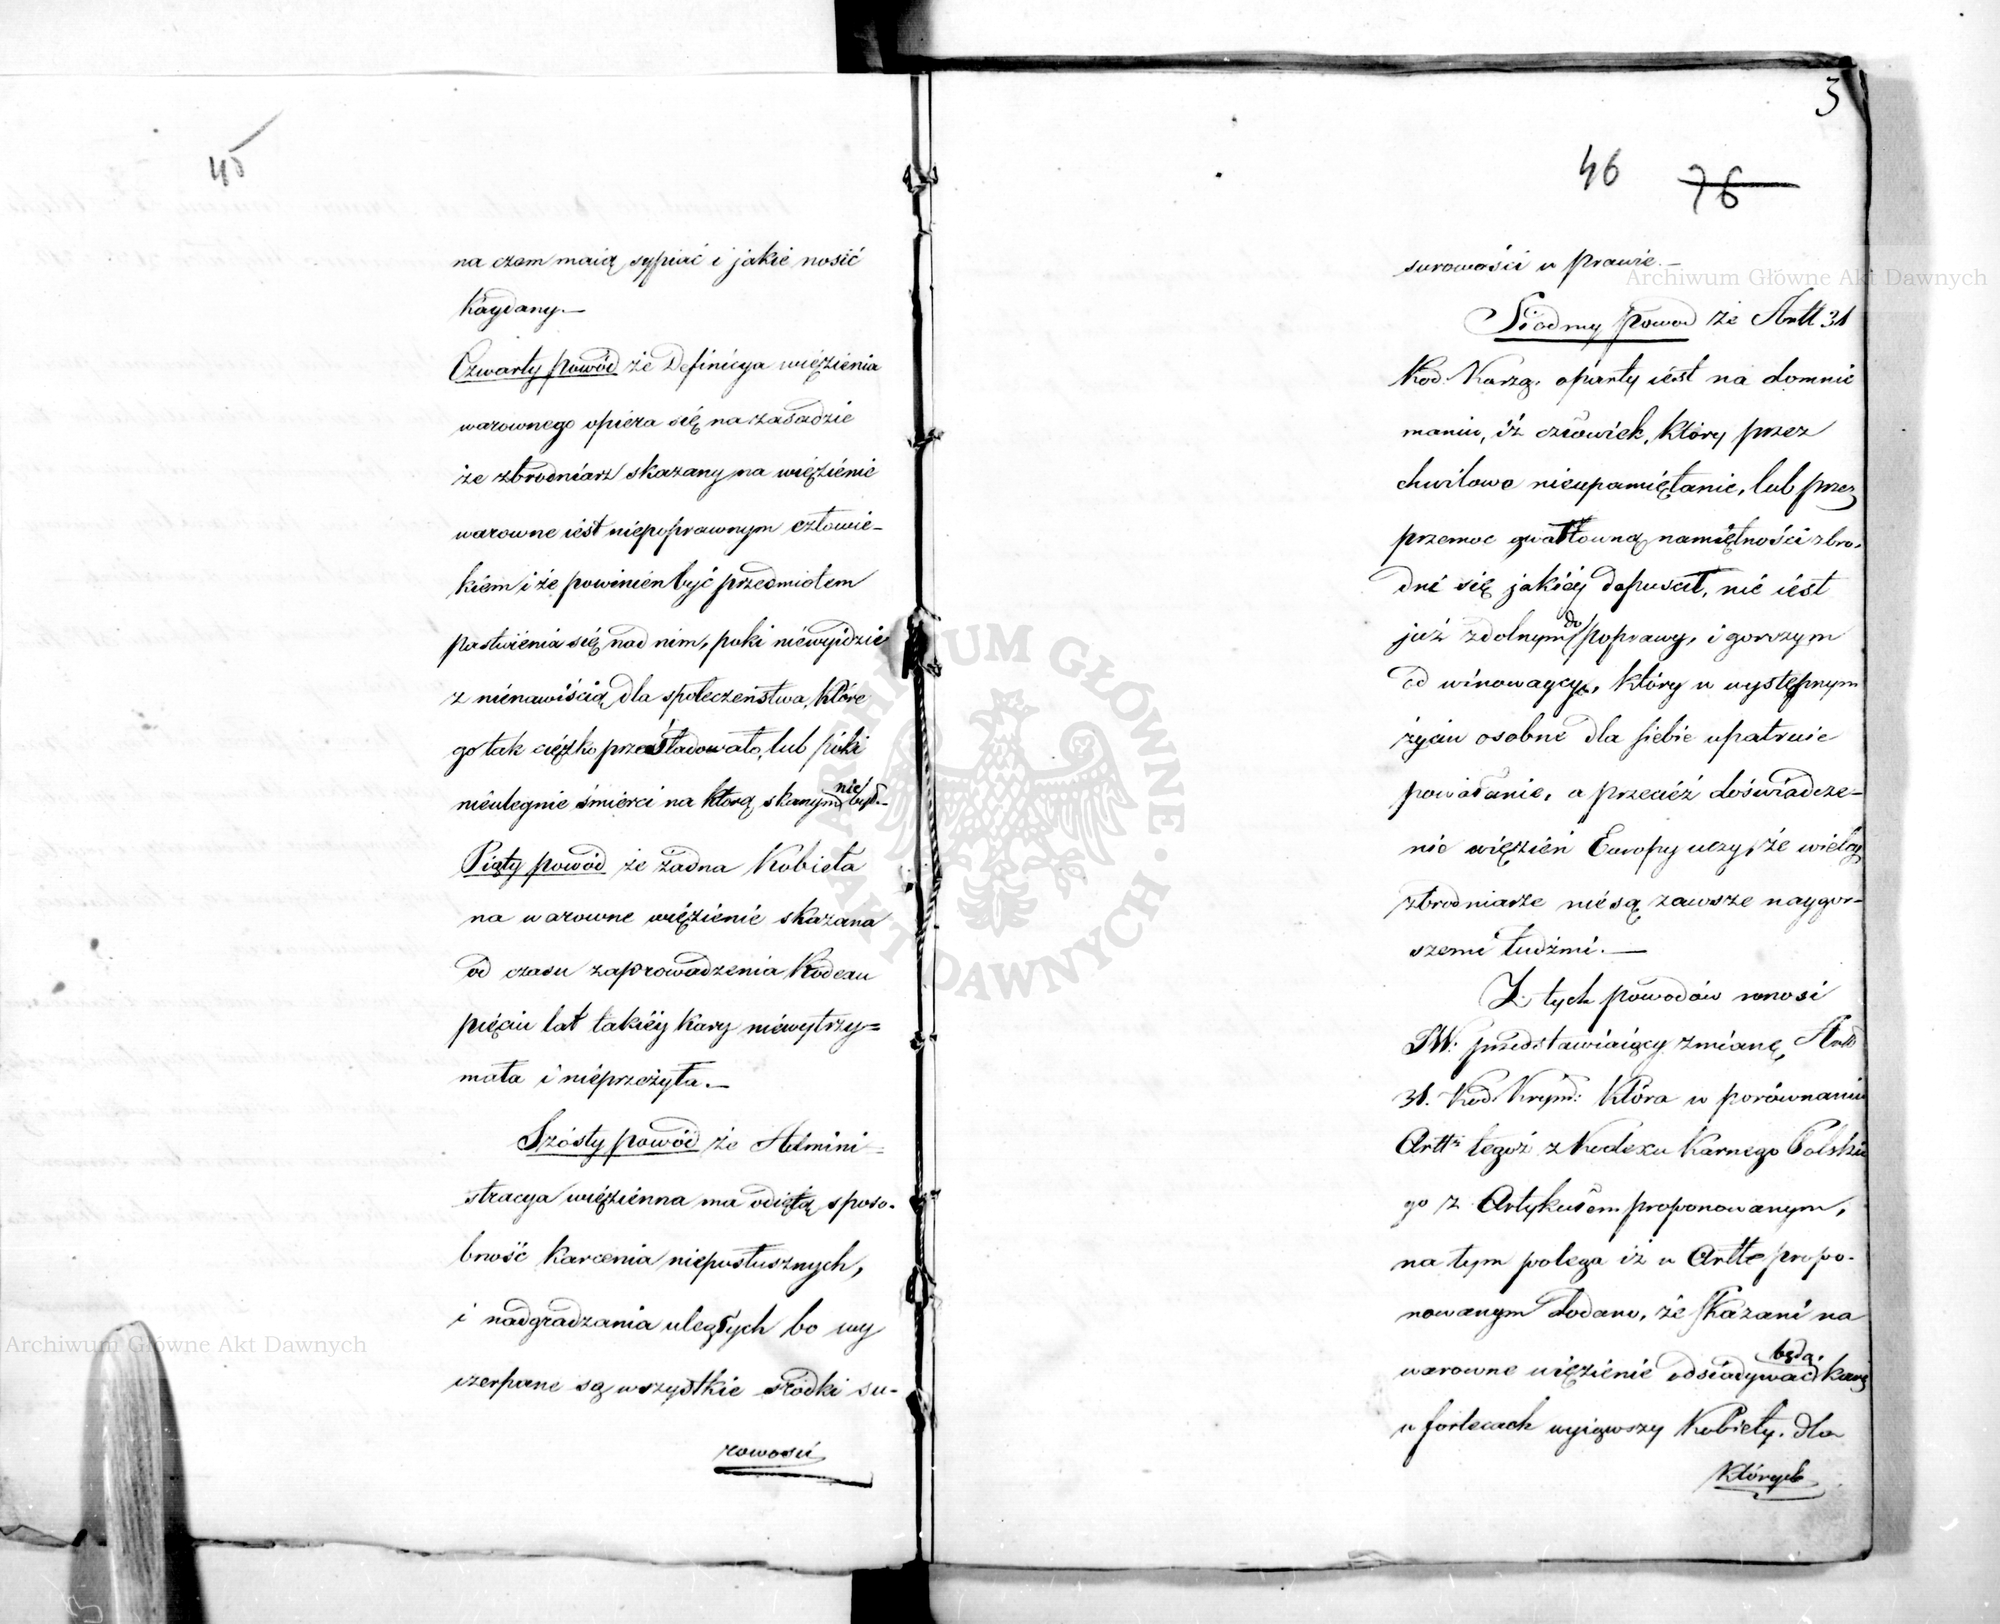 45
na czem maią sypiać i jakie nosić
Kaydany.—
Czwarty powód że Definicya więzienia
warownego opiera się na zasadzie
że zbrodniarz skazany na więzienie
warowne iest niepoprawnym człowie-
kiem i że powinien być przedmiotem
pastwienia się nad nim, poki niewyidzie
z nienawiścią dla społeczeństwa, które
go tak ciężko prześladowało, lub póki
nieulegnie śmierci na którą skanym nie był.-
Piąty powód że żadna Kobieta
na warowne więzienie skazana
od czasu zaprowadzenia Kodexu
pięciu lat takiéy kary niewytrzy=
mała i nieprzeżyła.—
Szósty powód że Admini=
stracya więzienna ma odiętą sposo-
bność karcenia nieposłusznych,
i nadgradzania uległych bo wy
czerpane są wszystkie srodki su-
rowosci
3
46 76
surowości w prawie.—
Siodmy powod że Artt 31
Kod. Karzą. oparty iest na domnie
maniu, iż człowiek, który przez
chwilowe nieupamiętanie, lub przez
przemoc gwałtowną namiętności zbro-
dni się jakiéy dopuscił, nie iest
już zdolnym do poprawy, i gorszym
od winowaycy, który w występnym
życiu osobne dla siebie upatruie
powołanie, a przecież doświadcze-
nie więzień Europy uczy, że wielcy
zbrodniarze niesą zawsze naygor-
szemi ludźmi.—
Z tych powodów wnosi
JW: przedstawiaiący zmianę, Artt
31. Kod. Krym: Która w porównaniu
Arttu tegoż z Kodexu Karnego Polskie
go z Artykułem proponowanym,
na tym polega iż w Artle propo-
nowanym dodano, że skazani na
warowne więzienie odsiadywać będą. karę
w fortecach wyiąwszy Kobiety. dla
Których
Archiwum Główne Akt Dawnych
Archiwum Główne Akt Dawnych
ARCHIWUM GŁÓWNE AKT DAWNYCH